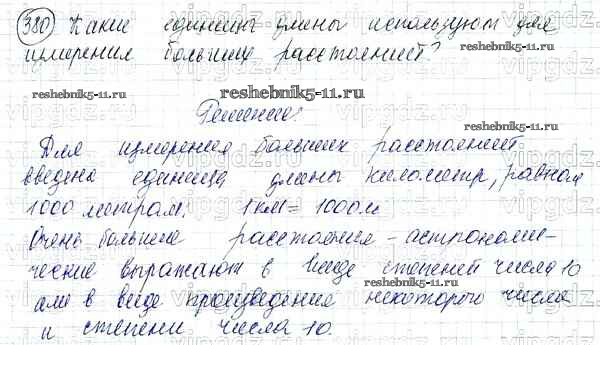 380 Какие единицы длины используют для
измерения больших расстояний?
reshebnik5-11.ru
reshebnik5-11.ru
Решение:
reshebnik5-11.ru
Для измерения больших расстояний
введена единица длины километр, равная
1000 метрам. 1 км = 1000 м
Очень большие расстояния - астрономи-
ческие выражают в виде степеней числа 10
reshebnik5-11.ru
или в виде произведения некоторого числа
и степени числа 10.
reshebnik5-11.ru
vipgdz.ru